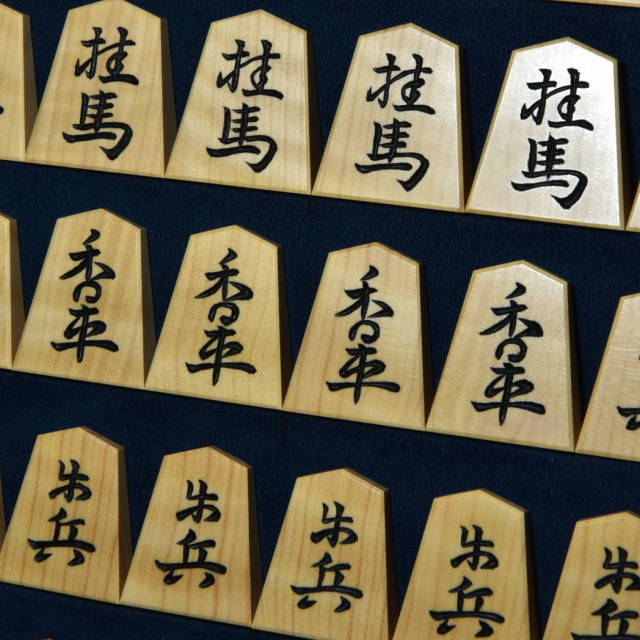 桂馬
桂馬
桂馬
桂馬
香車
香車
香車
香車
歩兵
歩兵
歩兵
歩兵
歩兵